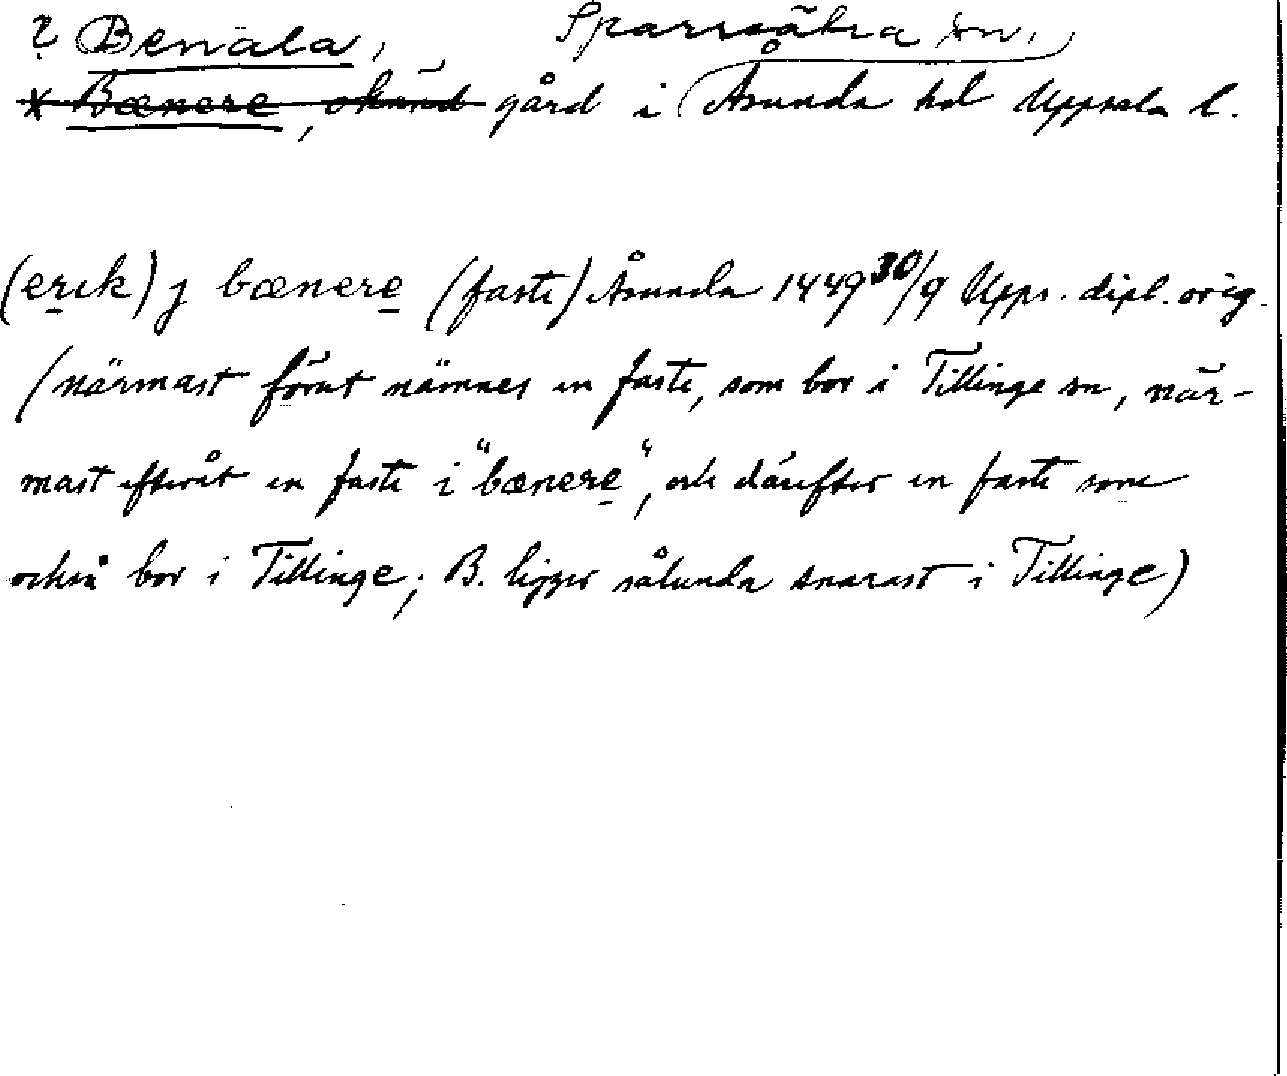 ? Benala, Sparrsätra sn,
x Bænere, okänd gård i Åsunda hd Uppsala l.
(erik) j bænere (faste) Åsunda 1449 30/9 Upps. dipl. orig.
(närmast förut nämnes en faste, som bor i Tillinge sn, när-
mast efteråt en faste i "bænere", och därefter en faste som
också bor i Tillinge; B. ligger sålunda snarast i Tillinge)